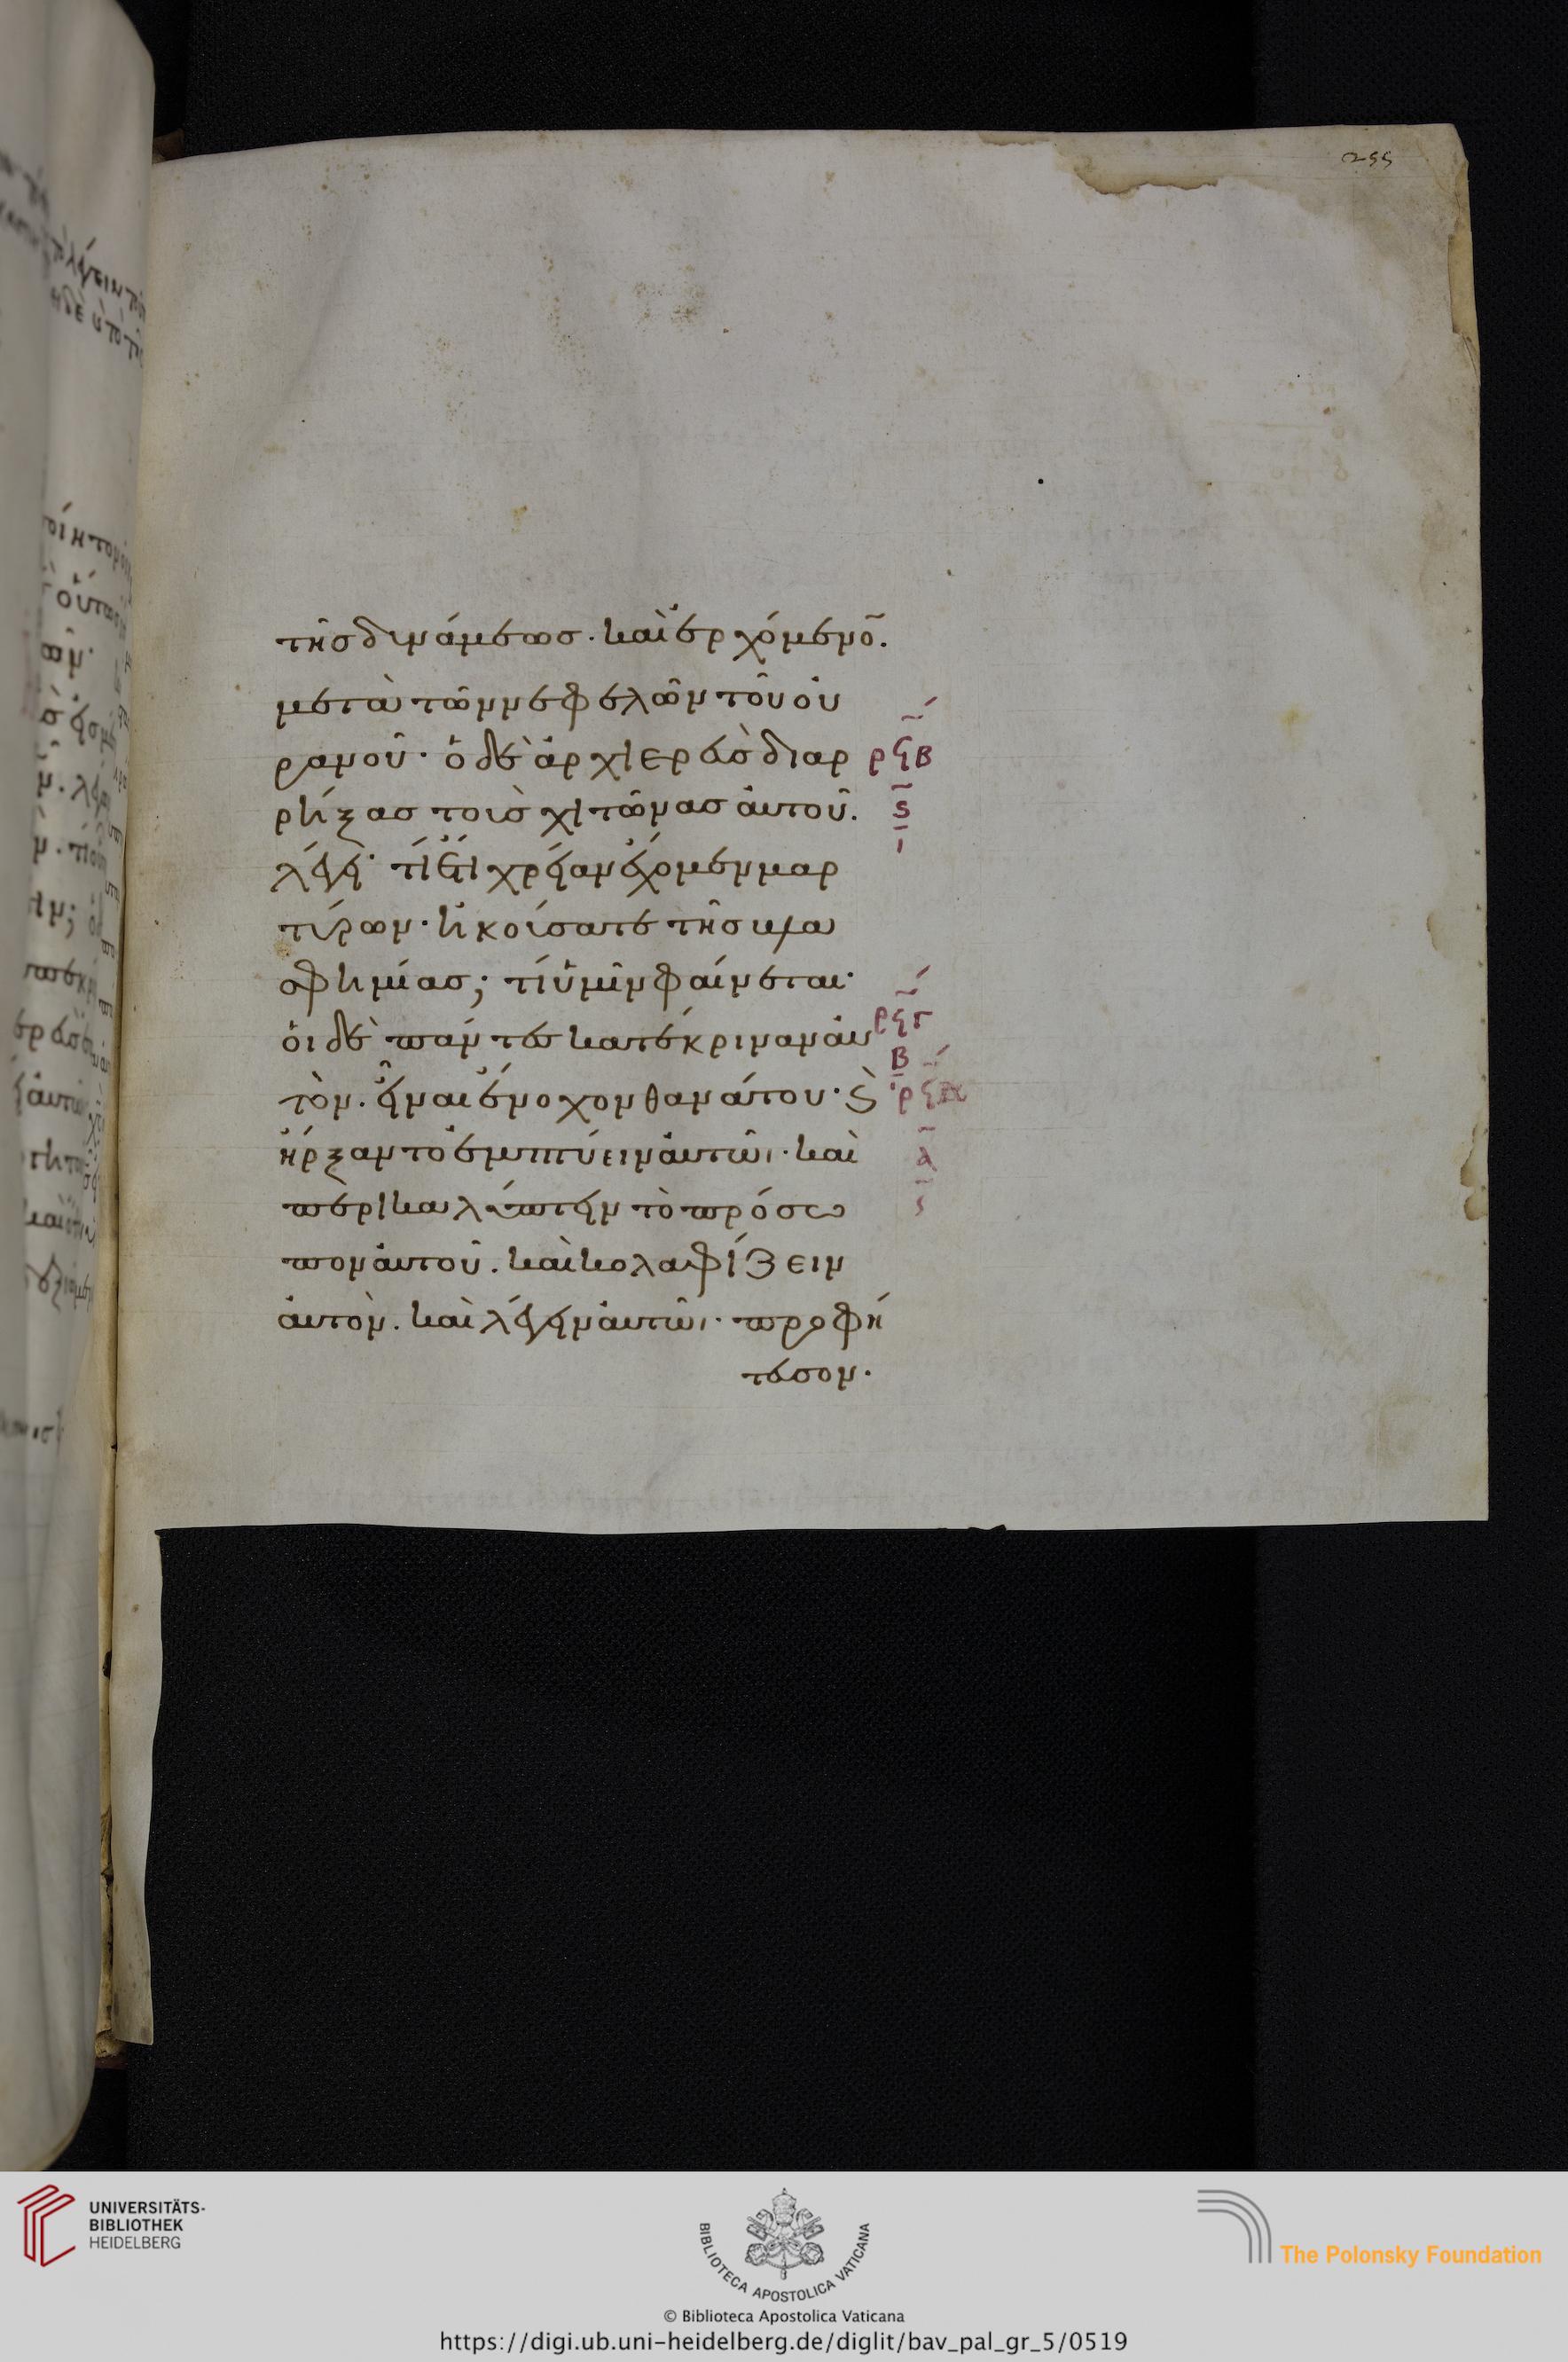 255
τῆς δυνάμεως · καὶ ἐρχόμενο̃.
μετὰ τῶν νεφελῶν τοῦ οὐ
ρανοῦ · ὁ δὲ ἀρχιερεὺς διαρ ρϟβ
ρήξας τοὺς χιτῶνας αὐτοῦ. ς
λέγει · τί ἔτι χρείαν ἔχομεν μαρ ι
τύρων · ἠκούσατε τῆς βλα
σφημίας; τί ὑμῖν φαίνεται ·
οἱ δὲ πάντες κατέκριναν αὐ ρϟγ
β
τὸν . εἶναι ἔνοχον θανάτου · ϗ ρϟδ
ἤρξαντο ἐμπτύειν αὐτῶι · καὶ α
περικαλύπτειν τὸ πρόσω ς
πον αὐτοῦ . καὶ κολαφίζειν
αὐτὸν . καὶ λέγειν αὐτῶι · προφή
τευσον ·
UNIVERSITÄTS-
BIBLIOTHEK
HEIDELBERG
BIBLIOTECA APOSTOLICA VATICANA
The Polonsky Foundation
© Biblioteca Apostolica Vaticana
https://digi.ub.uni-heidelberg.de/diglit/bav_pal_gr_5/0519